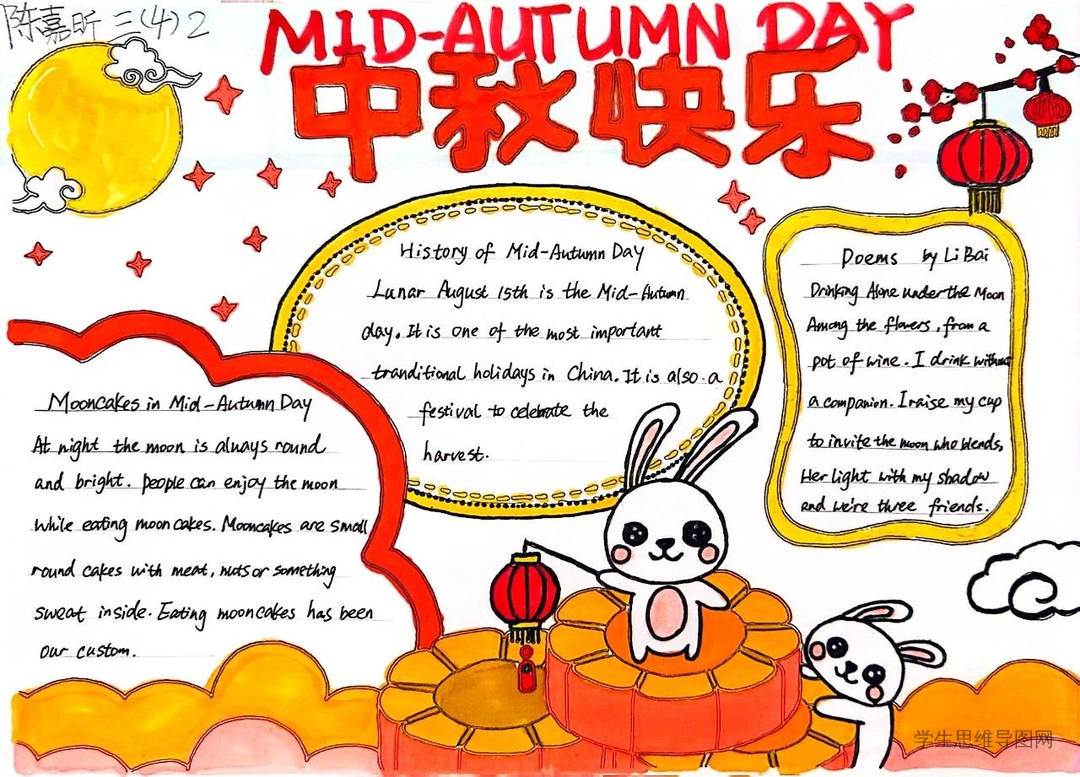 陈嘉昕 三(4) 2
MID-AUTUMN DAY
中秋快乐
History of Mid-Autumn Day
Lunar August 15th is the Mid-Autumn
day. It is one of the most important
tranditional holidays in China. It is also a
festival to celebrate the
harvest.
Poems by Li Bai
Drinking Alone under the Moon
Among the flowers, from a
pot of wine. I drink without
a companion. I raise my cup
to invite the moon who blends,
Her light with my shadow
and we're three friends.
Mooncakes in Mid-Autumn Day
At night the moon is always round
and bright. people can enjoy the moon
while eating mooncakes. Mooncakes are small
round cakes with meat, nuts or something
sweat inside. Eating mooncakes has been
our custom.
学生思维导图网